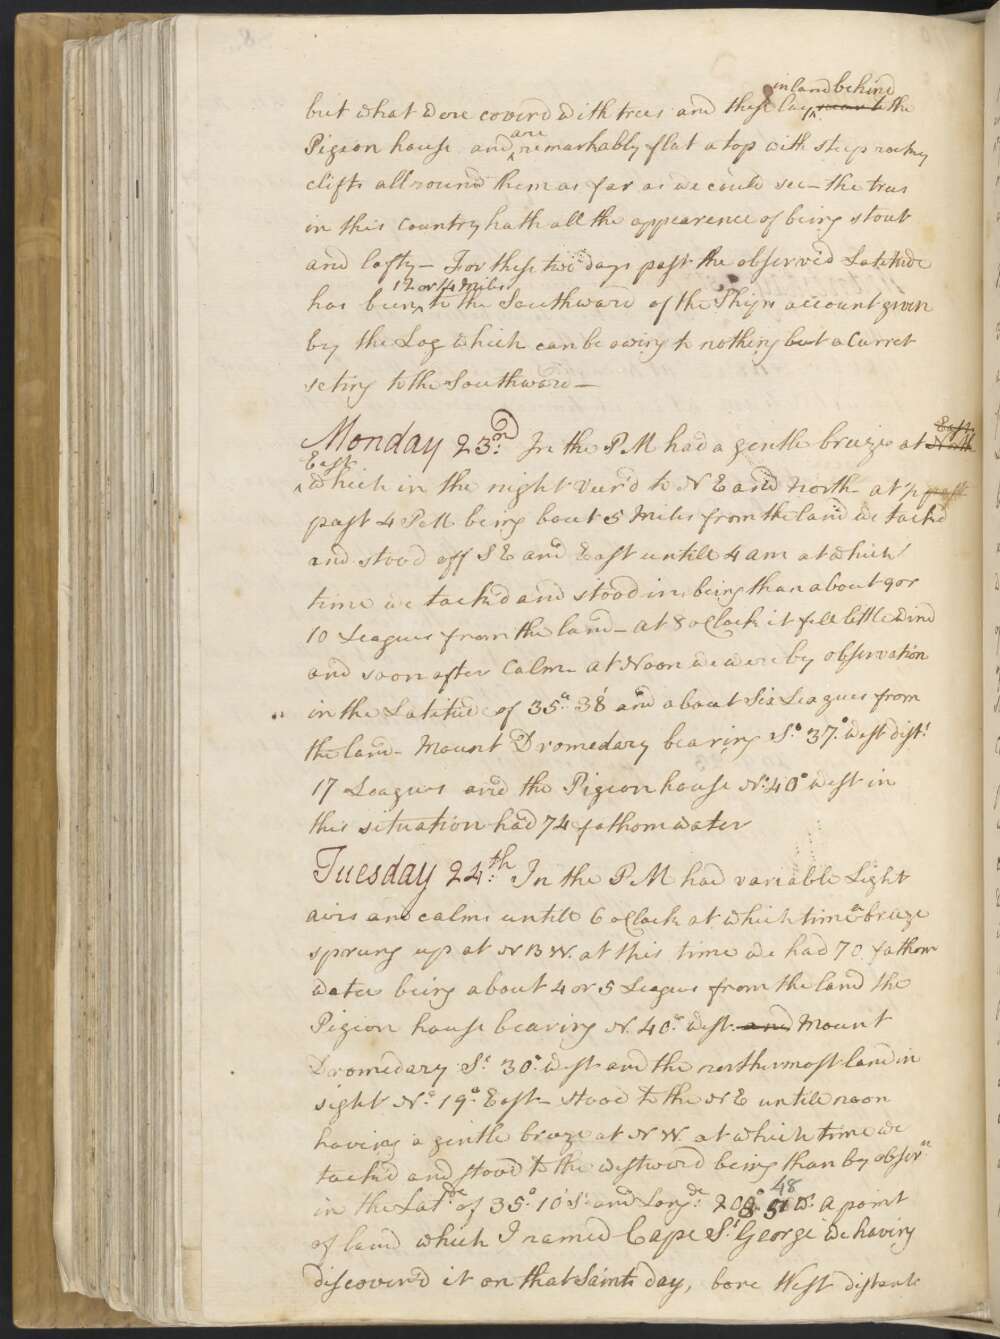 inland behind
but what were coverd with trees and these lay near to the
are
Pigeon house and remarkably flat atop with steep rocky
clifts all round them as far as we could see — the trees
in this Country hath all the appearence of being stout
and lofty — For these two days past the observed Latitude
12 or 14 Miles
has been to the Southward of the Ship's account given
by the Log which can be owing to nothing but a Curret
seting to the Southward —
East
Monday 23rd. In the PM had a gentle breeze at North
East
which in the night veer'd to NE and North at ½ past
past 4 PM being bout 5 Miles from the land we tack'd
and stood off SE and East untill 4 am at which
time we tack'd and stood in, being than about 9 or
10 Leagues from the land — at 8 oClock it fell little wind
and soon after Calm. At Noon we were by observation
in the Latitude of 35°.. 38' and about Six Leagues from
the land — Mount Dromedary bearing So. 37°. West distt.
17 Leagues and the Pigeon house No. 40° West in
this situation had 74 fathom water
Tuesday 24.th In the PM had variable Light
airs and calms untill 6 oClock at which time a breeze
sprung up at NBW. at this time we had 70 fathom
water being about 4 or 5 Leagues from the land the
Pigeon house bearing N. 40°. West. and Mount
Dromedary S. 30°. West and the northermost land in
sight No. 19°. East — stood to the NE untill noon
having a gentle breeze at NW. at which time we
tack'd and stood to the westward being than by obsern.
48
in the Latde. of 35°.. 10' S. and Longde. 208°. 51 W. a point
of land which I named Cape St. George we having
discover'd it on that Saints day, bore West distant